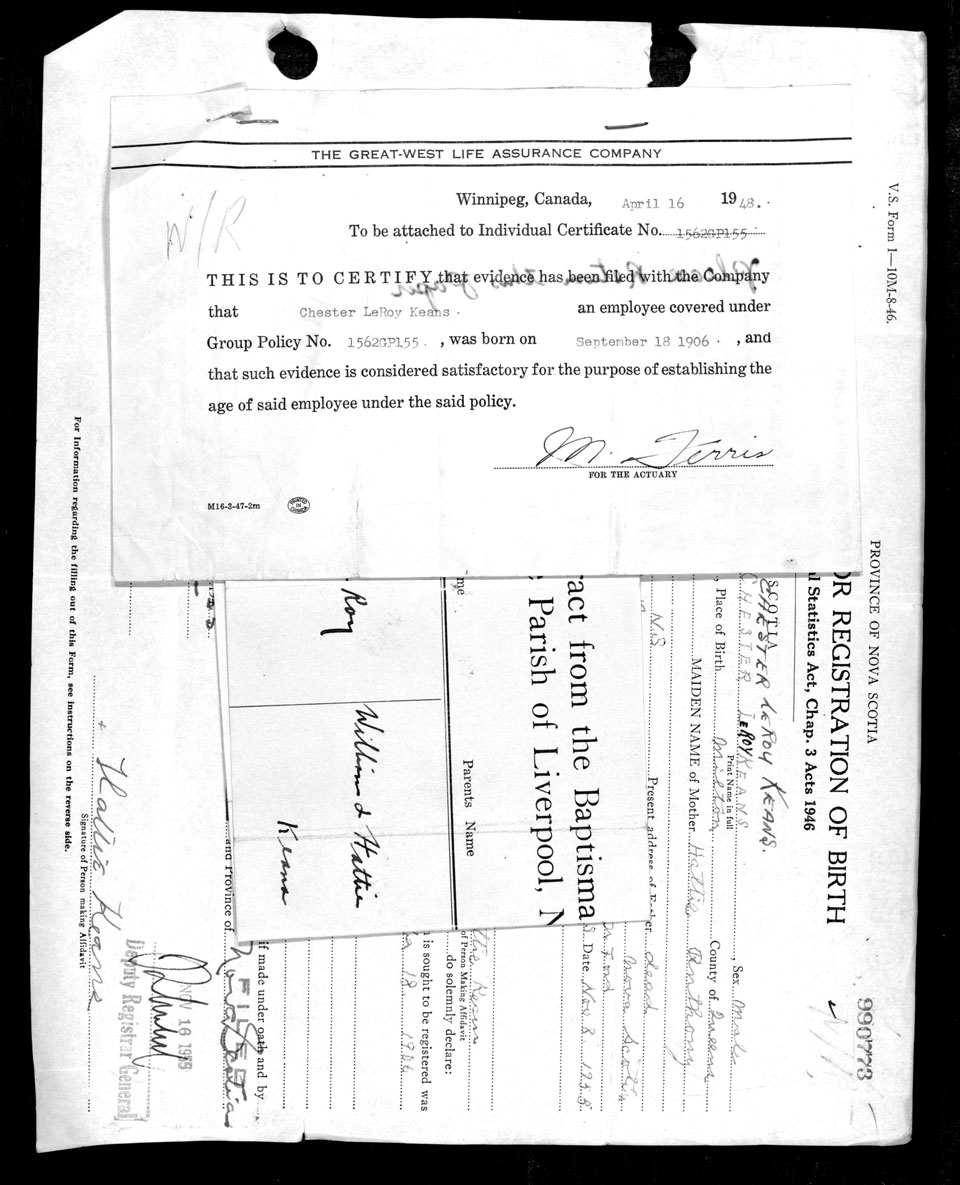 THE GREAT-WEST LIFE ASSURANCE COMPANY
N/R
Winnipeg, Canada, April 16 1948.
To be attached to Individual Certificate No. 1562GP155
THIS IS TO CERTIFY that evidence has been filed with the Company
that Chester LeRoy Keans an employee covered under
Group Policy No. 1562GP155 , was born on September 18 1906 , and
that such evidence is considered satisfactory for the purpose of establishing the
age of said employee under the said policy.
M. Ferris
FOR THE ACTUARY
M16-3-47-2m
PRINTED IN CANADA
V.S. Form 1—10M-8-46.
PROVINCE OF NOVA SCOTIA
990773
OR REGISTRATION OF BIRTH
l Statistics Act, Chap. 3 Acts 1946
SCOTIA
CHESTER LEROY KEANS.
CHESTER LEROY KEANS , Sex Male
Print Name in full
, Place of Birth Milton County of Queens
MAIDEN NAME of Mother Hattie Anthony
Present address of Father dead
N.S.
Nova Scotia
Date Nov 8 1955
ract from the Baptisma
Parish of Liverpool, N
me
Parents Name
Roy
William & Hattie
Keans
of Person Making Affidavit
do solemnly declare:
n is sought to be registered was
18 1906
if made under oath and by
and Province of Nova Scotia
FILED
NOV 16 1955
Deputy Registrar General
Hattie Keans
Signature of Person making Affidavit
For Information regarding the filling out of this Form, see instructions on the reverse side.